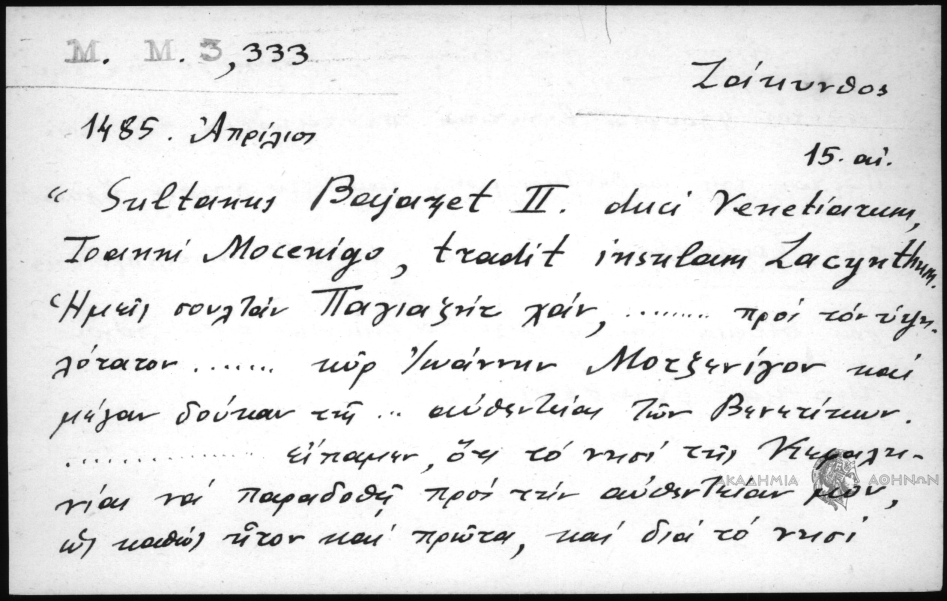 M. M. 3, 333
Ζάκυνθος
1485. Ἀπρίλιος
15. αἰ.
“ Sultanus Bajazet II. duci Venetiarum,
Ioanni Mocenigo, tradit insulam Zacynthum.
Ἡμεῖς σουλτὰν Παγιαζὴτ χάν, ........ πρὸς τὸν ὑψη-
λότατον ....... κῦρ Ἰωάννην Μοτζενίγον καὶ
μέγαν δούκαν τῆς ... αὐθεντείας τῶν Βενετίκων.
.............. εἴπαμεν, ὅτι τὸ νησὶ τῆς Κεφαλη-
νίας νὰ παραδοθῇ πρὸς τὴν αὐθεντείαν μου,
ὡς καθὼς ἦτον καὶ πρῶτα, καὶ διὰ τὸ νησὶ
ΑΚΑΔΗΜΙΑ ΑΘΗΝΩΝ